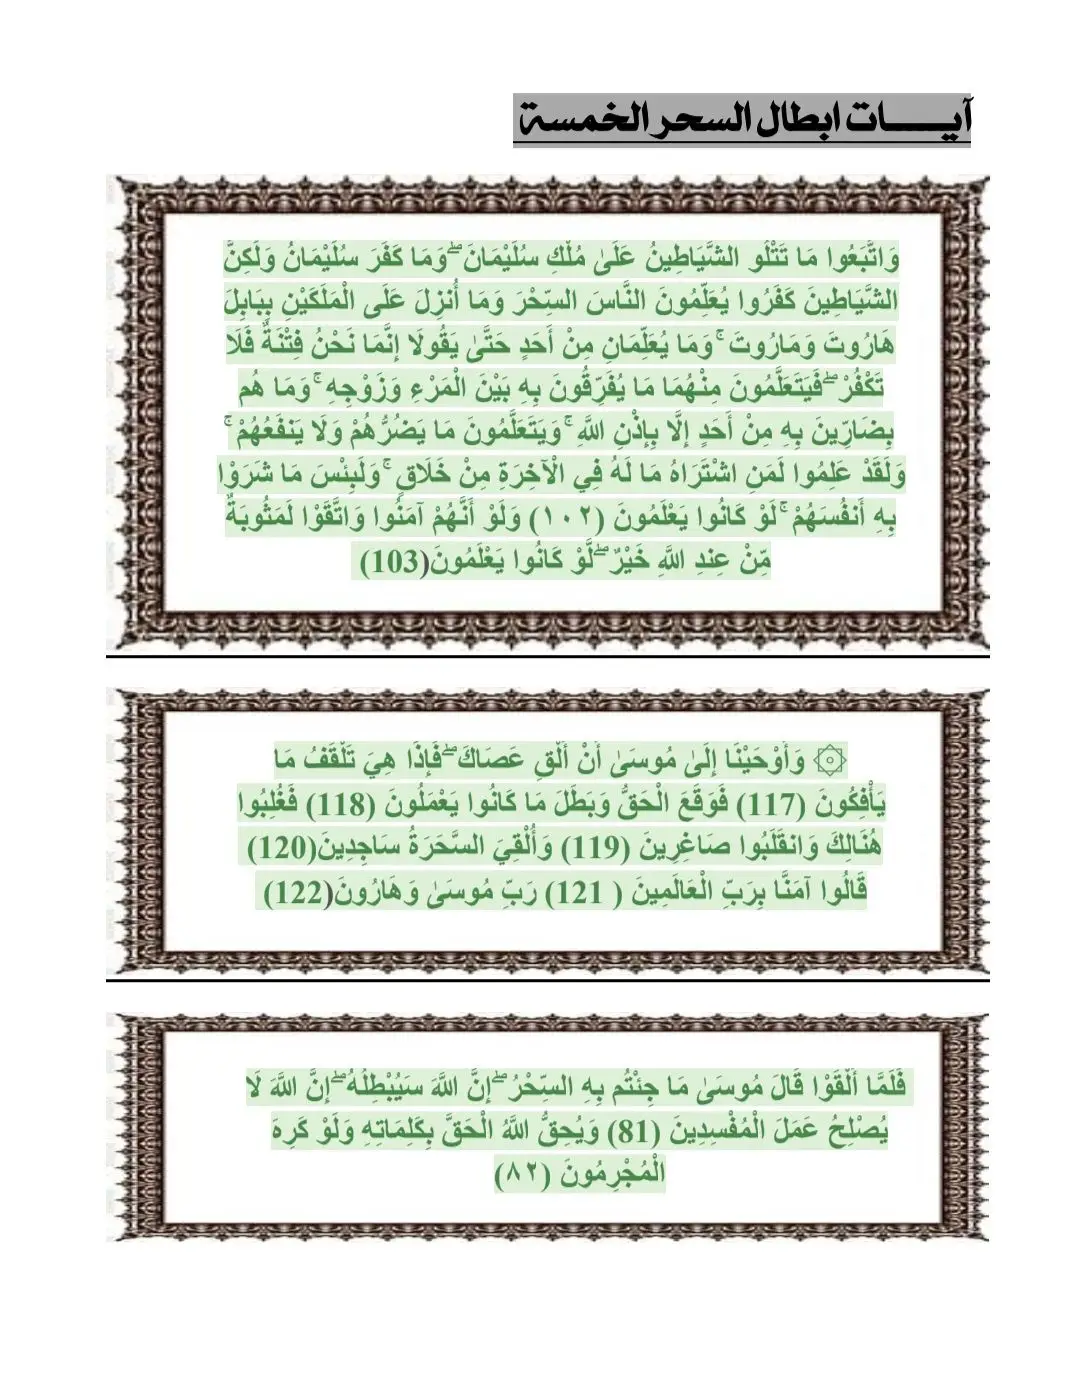 آيـــــات ابطال السحر الخمسة
وَاتَّبَعُوا مَا تَتْلُو الشَّيَاطِينُ عَلَىٰ مُلْكِ سُلَيْمَانَ ۖ وَمَا كَفَرَ سُلَيْمَانُ وَلَٰكِنَّ
الشَّيَاطِينَ كَفَرُوا يُعَلِّمُونَ النَّاسَ السِّحْرَ وَمَا أُنزِلَ عَلَى الْمَلَكَيْنِ بِبَابِلَ
هَارُوتَ وَمَارُوتَ ۚ وَمَا يُعَلِّمَانِ مِنْ أَحَدٍ حَتَّىٰ يَقُولَا إِنَّمَا نَحْنُ فِتْنَةٌ فَلَا
تَكْفُرْ ۖ فَيَتَعَلَّمُونَ مِنْهُمَا مَا يُفَرِّقُونَ بِهِ بَيْنَ الْمَرْءِ وَزَوْجِهِ ۚ وَمَا هُم
بِضَارِّينَ بِهِ مِنْ أَحَدٍ إِلَّا بِإِذْنِ اللَّهِ ۚ وَيَتَعَلَّمُونَ مَا يَضُرُّهُمْ وَلَا يَنفَعُهُمْ ۚ
وَلَقَدْ عَلِمُوا لَمَنِ اشْتَرَاهُ مَا لَهُ فِي الْآخِرَةِ مِنْ خَلَاقٍ ۚ وَلَبِئْسَ مَا شَرَوْا
بِهِ أَنفُسَهُمْ ۚ لَوْ كَانُوا يَعْلَمُونَ (١٠٢) وَلَوْ أَنَّهُمْ آمَنُوا وَاتَّقَوْا لَمَثُوبَةٌ
مِّنْ عِندِ اللَّهِ خَيْرٌ ۖ لَّوْ كَانُوا يَعْلَمُونَ(103)
۞ وَأَوْحَيْنَا إِلَىٰ مُوسَىٰ أَنْ أَلْقِ عَصَاكَ ۖ فَإِذَا هِيَ تَلْقَفُ مَا
يَأْفِكُونَ (117) فَوَقَعَ الْحَقُّ وَبَطَلَ مَا كَانُوا يَعْمَلُونَ (118) فَغُلِبُوا
هُنَالِكَ وَانقَلَبُوا صَاغِرِينَ (119) وَأُلْقِيَ السَّحَرَةُ سَاجِدِينَ(120)
قَالُوا آمَنَّا بِرَبِّ الْعَالَمِينَ ( 121) رَبِّ مُوسَىٰ وَهَارُونَ(122)
فَلَمَّا أَلْقَوْا قَالَ مُوسَىٰ مَا جِئْتُم بِهِ السِّحْرُ ۖ إِنَّ اللَّهَ سَيُبْطِلُهُ ۖ إِنَّ اللَّهَ لَا
يُصْلِحُ عَمَلَ الْمُفْسِدِينَ (81) وَيُحِقُّ اللَّهُ الْحَقَّ بِكَلِمَاتِهِ وَلَوْ كَرِهَ
الْمُجْرِمُونَ (٨٢)